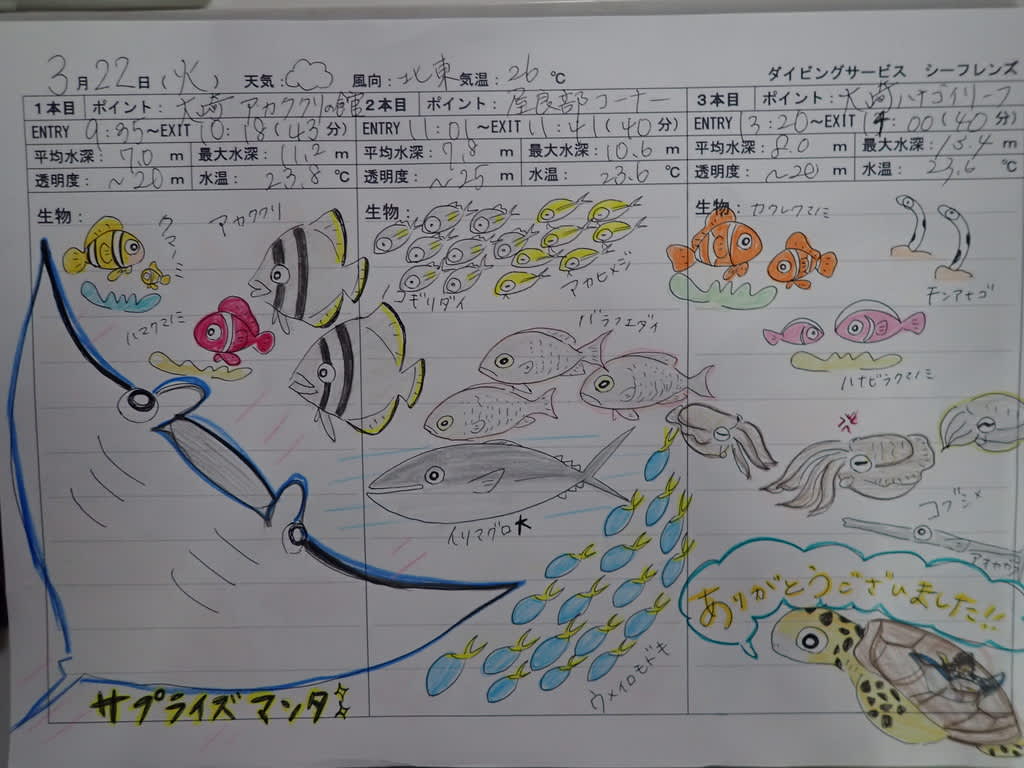 3月22日(火) 天気: 風向:北東 気温:26℃ ダイビングサービス シーフレンズ
1本目 ポイント:大崎アカククリの館 2本目 ポイント:屋良部コーナー 3本目 ポイント:大崎ハナゴイリーフ
ENTRY 9:35~EXIT 10:18(43分) ENTRY 11:01~EXIT 11:41(40分) ENTRY 13:20~EXIT 14:00(40分)
平均水深:7.0m 最大水深:11.2m 平均水深:7.8m 最大水深:10.6m 平均水深:8.0m 最大水深:13.4m
透明度:~20m 水温:23.8℃ 透明度:~25m 水温:23.6℃ 透明度:~20m 水温:23.6℃
生物: 生物: 生物:
クマノミ
アカククリ
ハマクマノミ
サプライズマンタ
アカヒメジ
ノコギリダイ
バラフエダイ
イソマグロ
ウメイロモドキ
カクレクマノミ
チンアナゴ
ハナビラクマノミ
コブシメ
アオヤガラ
ありがとうございました!!